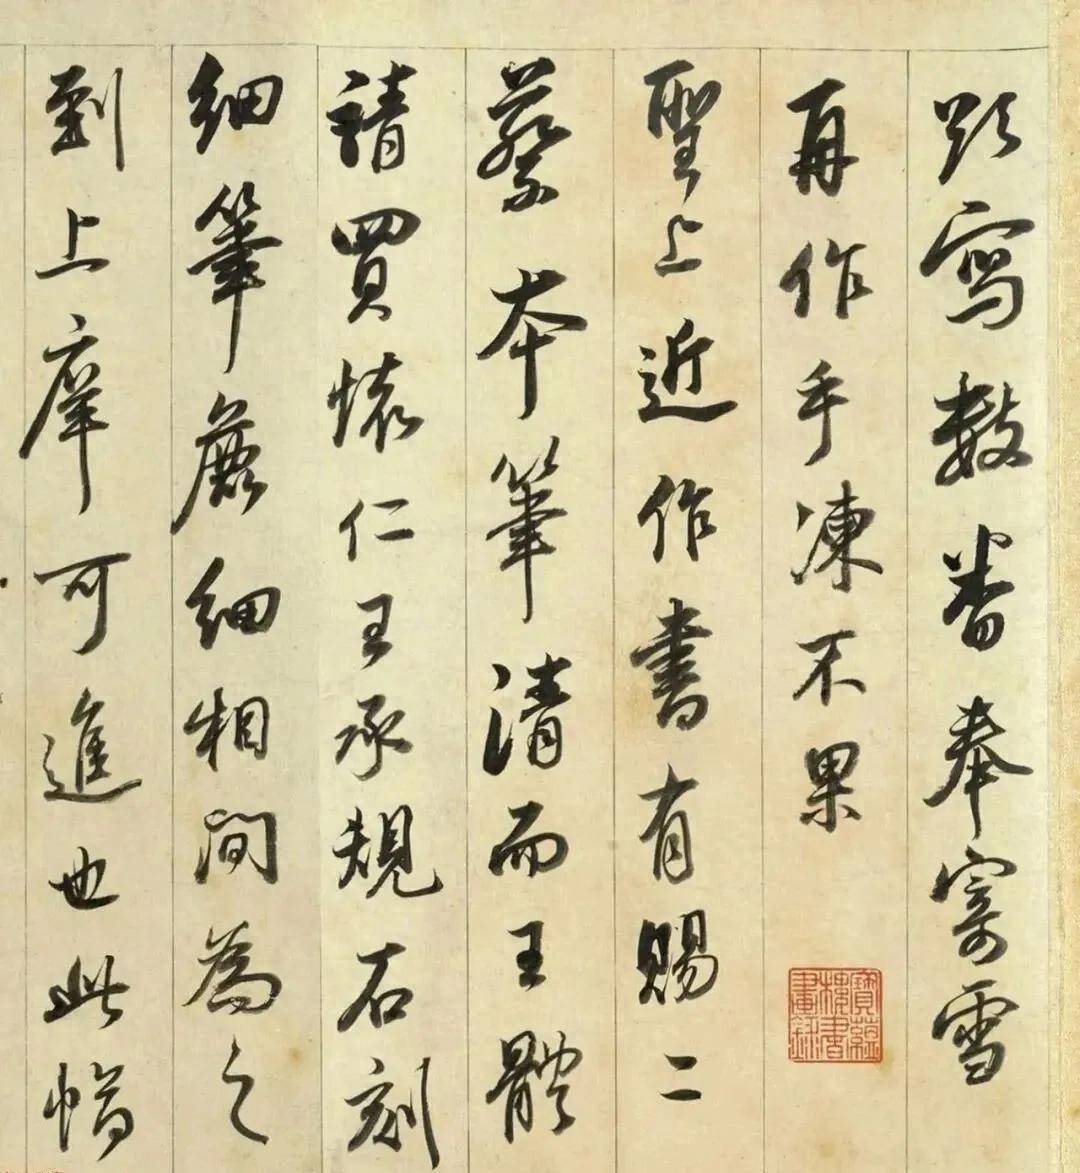 寫數番奉寄雪
再作手凍不果
聖上近作書有賜二
蔡本筆清而王體
請買懷仁王承規石刻
細筆麁細相間為之
到上庠可進也此
寶蘊樓書畫錄